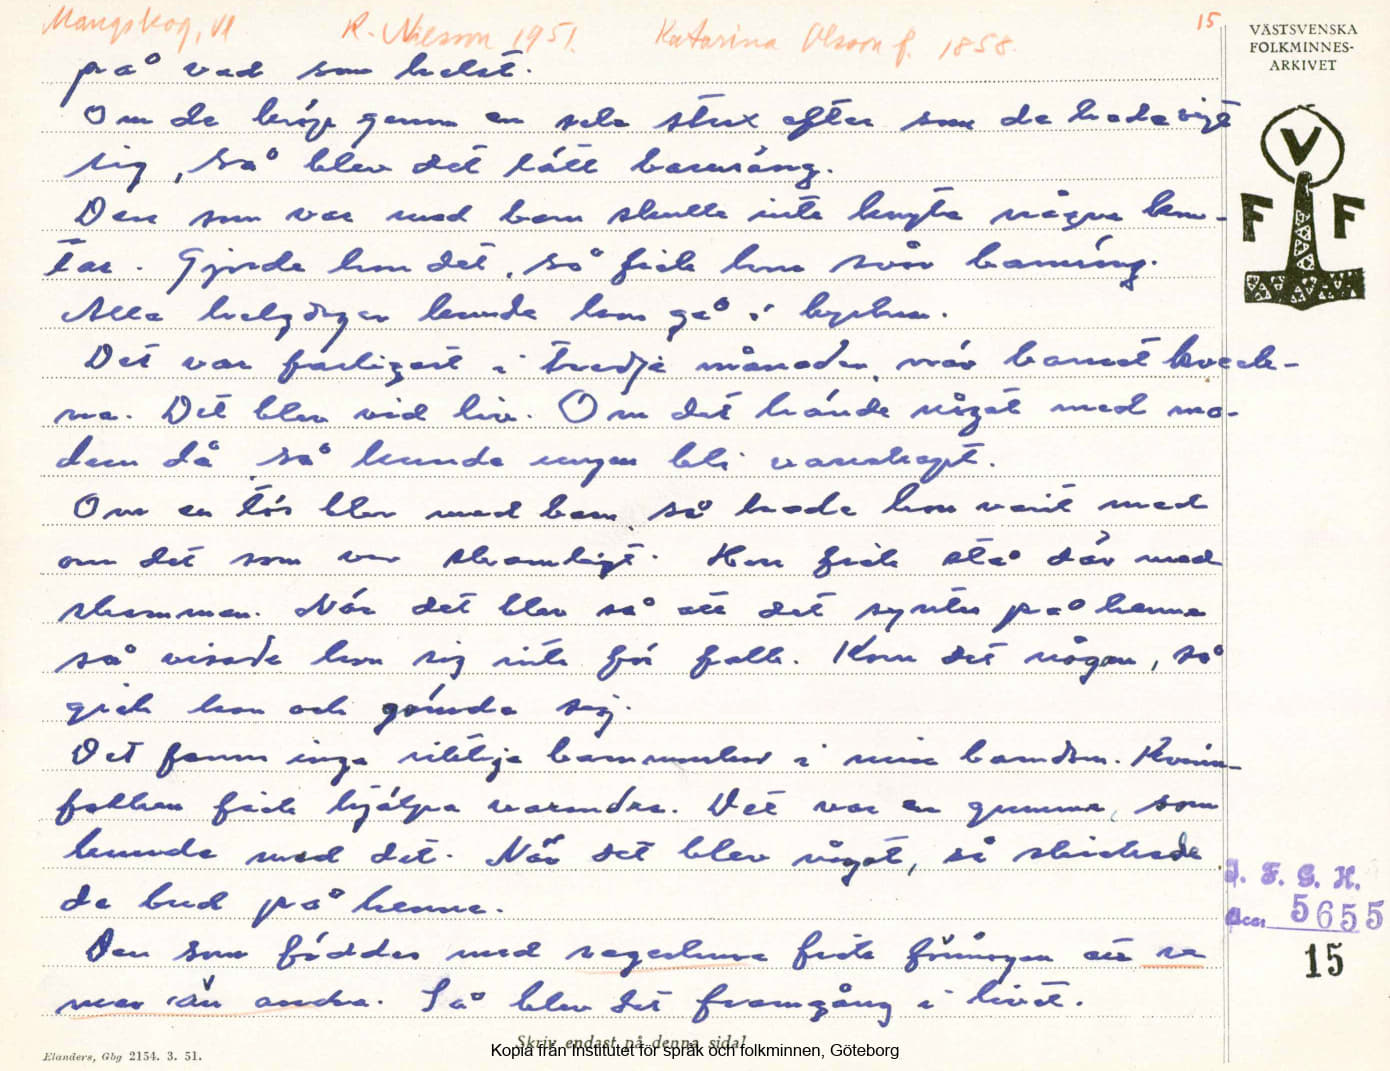 Mangskog, Vl R. Nilsson 1951. Katarina Olsson f. 1858. 15
VÄSTSVENSKA
FOLKMINNES-
ARKIVET
V
F F
på vad som helst.
Om de kröp genom en sele strax efter som de hade vigt
sig, så blev det lätt barnsäng.
Den som var med barn skulle inte knyta några knu-
tar. Gjorde hon det, så fick hon svår barnsäng.
Alla helgdagar kunde hon gå i kyrkan.
Det var farligast i tredje månaden, när barnet kveck-
na. Det blev vid liv. Om det hände något med mo-
dern då så kunde ungen bli vanskapt.
Om en tös blev med barn, så hade hon varit med
om det som var skamligt. Hon fick stå där med
skammen. När det blev så att det syntes på henne
så visade hon sig inte för folk. Kom det någon, så
gick hon och gömde sig.
Det fanns inga riktiga barnmorskor i min barndom. Kvinn-
folken fick hjälpa varandra. Det var en gumma, som
kunde med det. När det blev något, så skickade
de bud på henne.
Den som föddes med segerhuva fick förmågan att se
mer än andra. Så blev det framgång i livet.
I. F. G. H.
5655
15
Skriv endast på denna sida!
Elanders, Gbg 2154. 3. 51.
Kopia från Institutet för språk och folkminnen, Göteborg